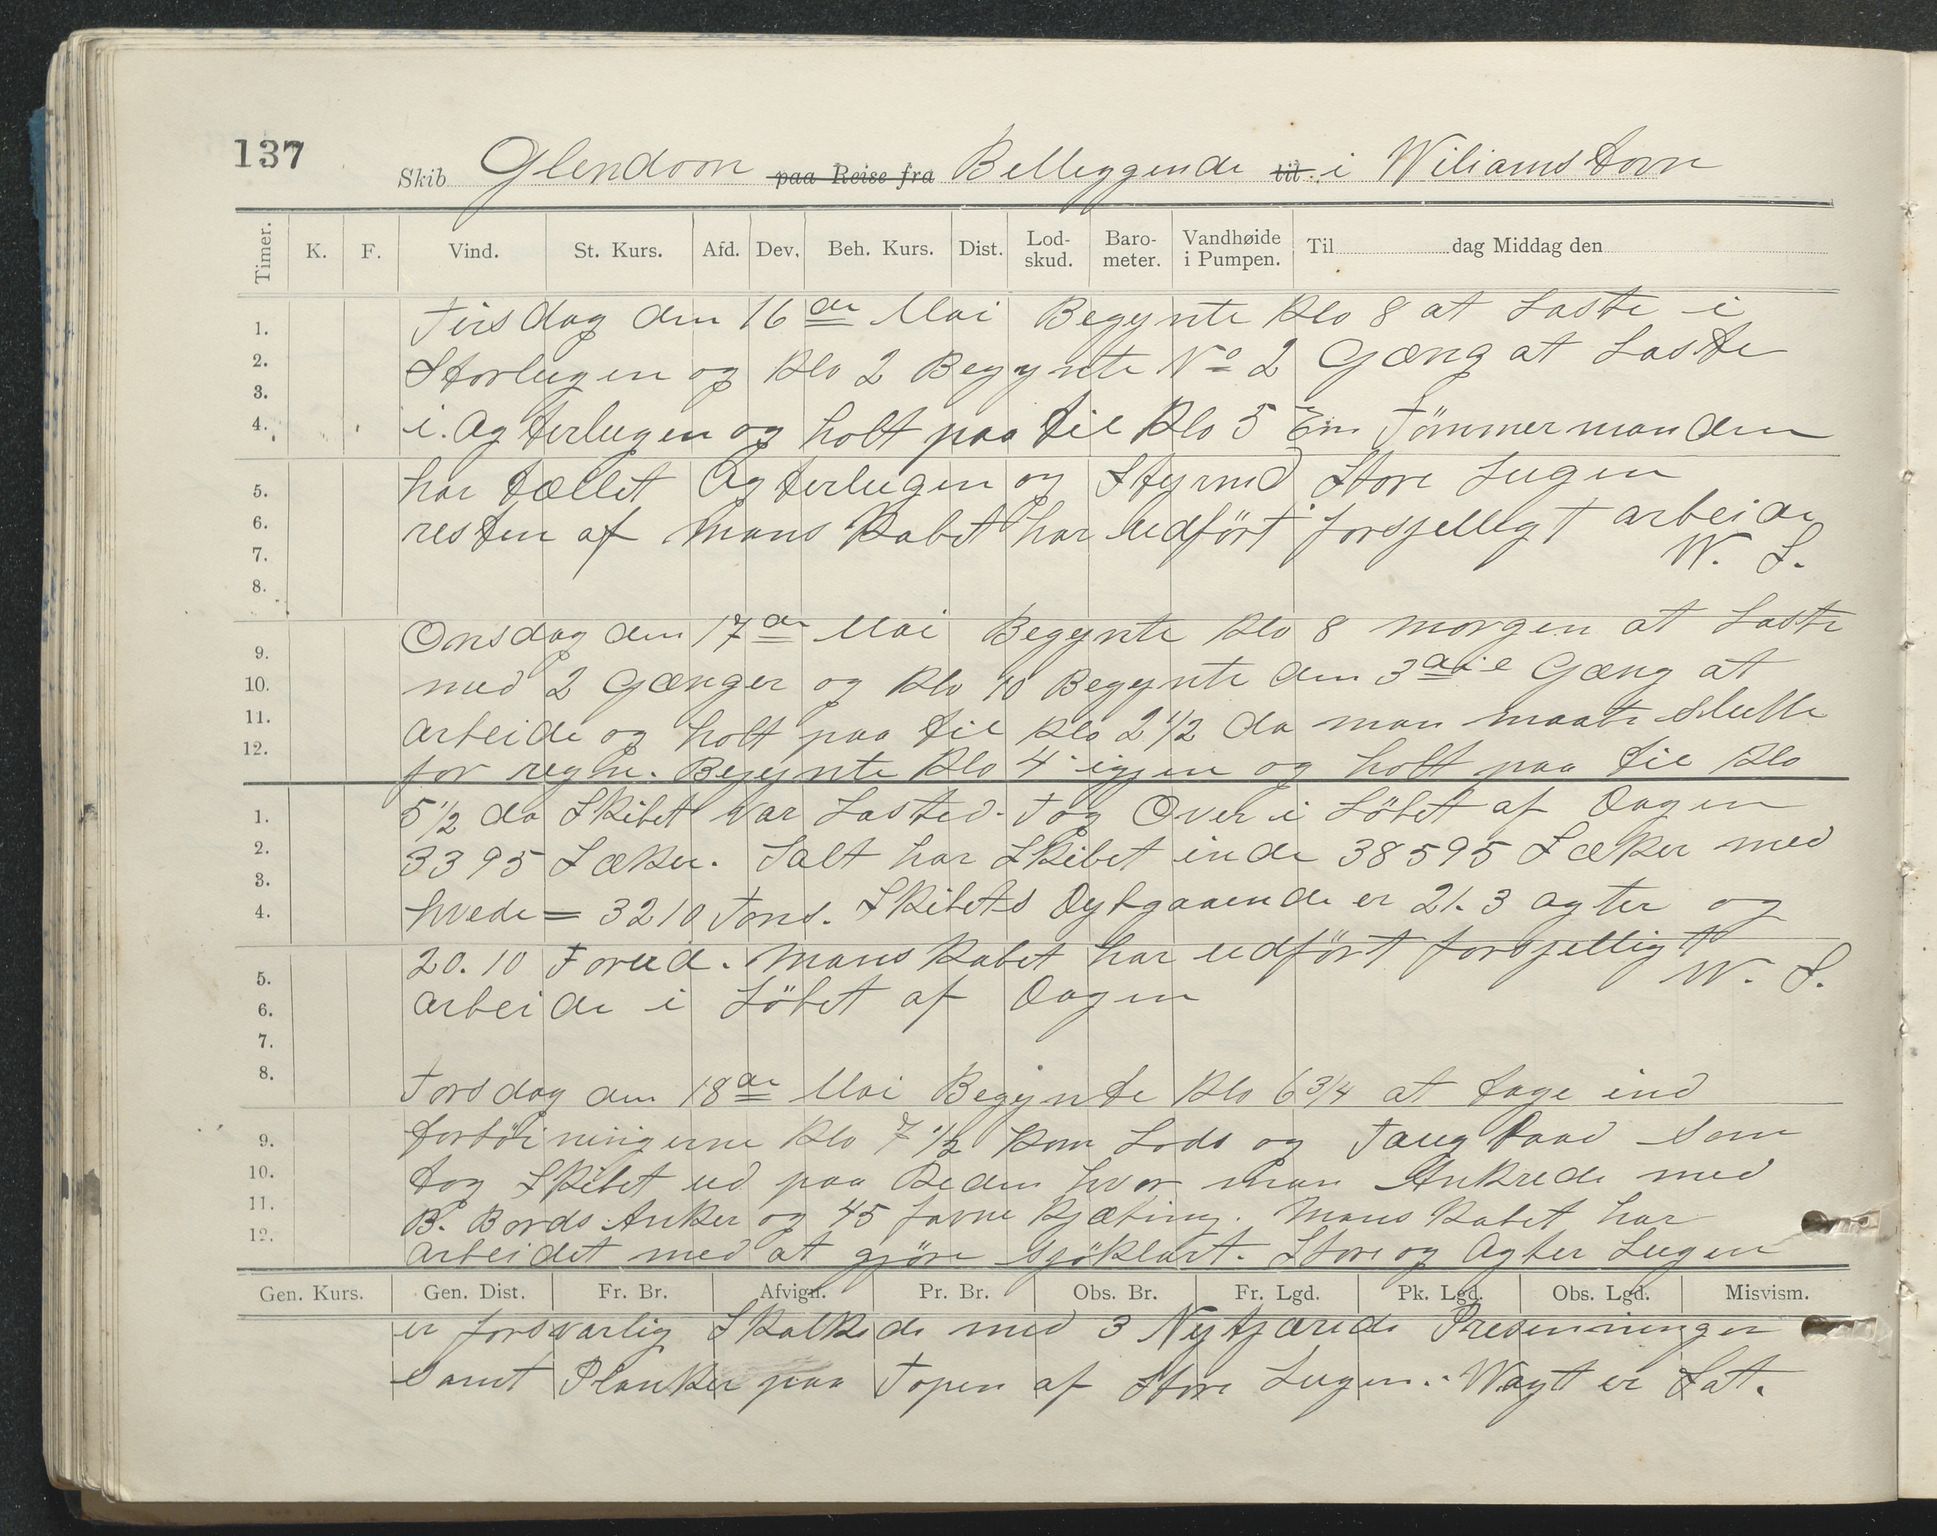 137
Skib Glendoon paa Reise fra Belleggende til i Wiliamstovn
Timer. K. F. Vind. St. Kurs. Afd. Dev. Beh. Kurs. Dist. Lod-skud. Baro-meter. Vandhøide i Pumpen. Til dag Middag den
Tirsdag den 16de Mai Begynte Klo 8 at Laste i
Storlugen og Klo 2 Begynte No 2 Gæng at Laste
i Agterlugen og holt paa til Klo 5 Em Tömmermanden
har tællet Agterlugen og Styrmd Store Lugen
resten af Manskabet har udført forsjelligt arbeide
W. S.
Onsdag den 17de Mai Begynte Klo 8 morgen at Laste
med 2 Gænger og Klo 10 Begynte den 3die Gæng at
arbeide og holt paa til Klo 2 1/2 da man maate slutte
for regn. Begynte Klo 4 igjen og holt paa til Klo
5 1/2 da Skibet var Lasted. Tog Over i Löbet af Dagen
3395 Sæker. Ialt har Skibet inde 38595 Sæker med
hvede = 3210 Tons. Skibets Dybgaaende er 21.3 agter og
20.10 Forud. Manskabet har udført forsjelligt
W. S.
arbeide i Löbet af Dagen
Torsdag den 18de Mai Begynte Klo 6 3/4 at tage ind
fortöiningerne Klo 7 1/2 kom Lods og Taugbaad som
tog Skibet ud paa Reden hvor man Ankrede med
B. Bords Anker og 45 favne Kjæting. Manskabet har
arbeidet med at gjöre sjöklart. Store og Agter Lugen
Gen. Kurs. Gen. Dist. Fr. Br. Afvign. Pr. Br. Obs. Br. Fr. Lgd. Pk. Lgd. Obs. Lgd. Misvism.
er forsvarlig Skalkede med 3 Nytjærede Presenninger
samt Planker paa Topen af Store Lugen. Wagt er Sat.
1.
2.
3.
4.
5.
6.
7.
8.
9.
10.
11.
12.
1.
2.
3.
4.
5.
6.
7.
8.
9.
10.
11.
12.